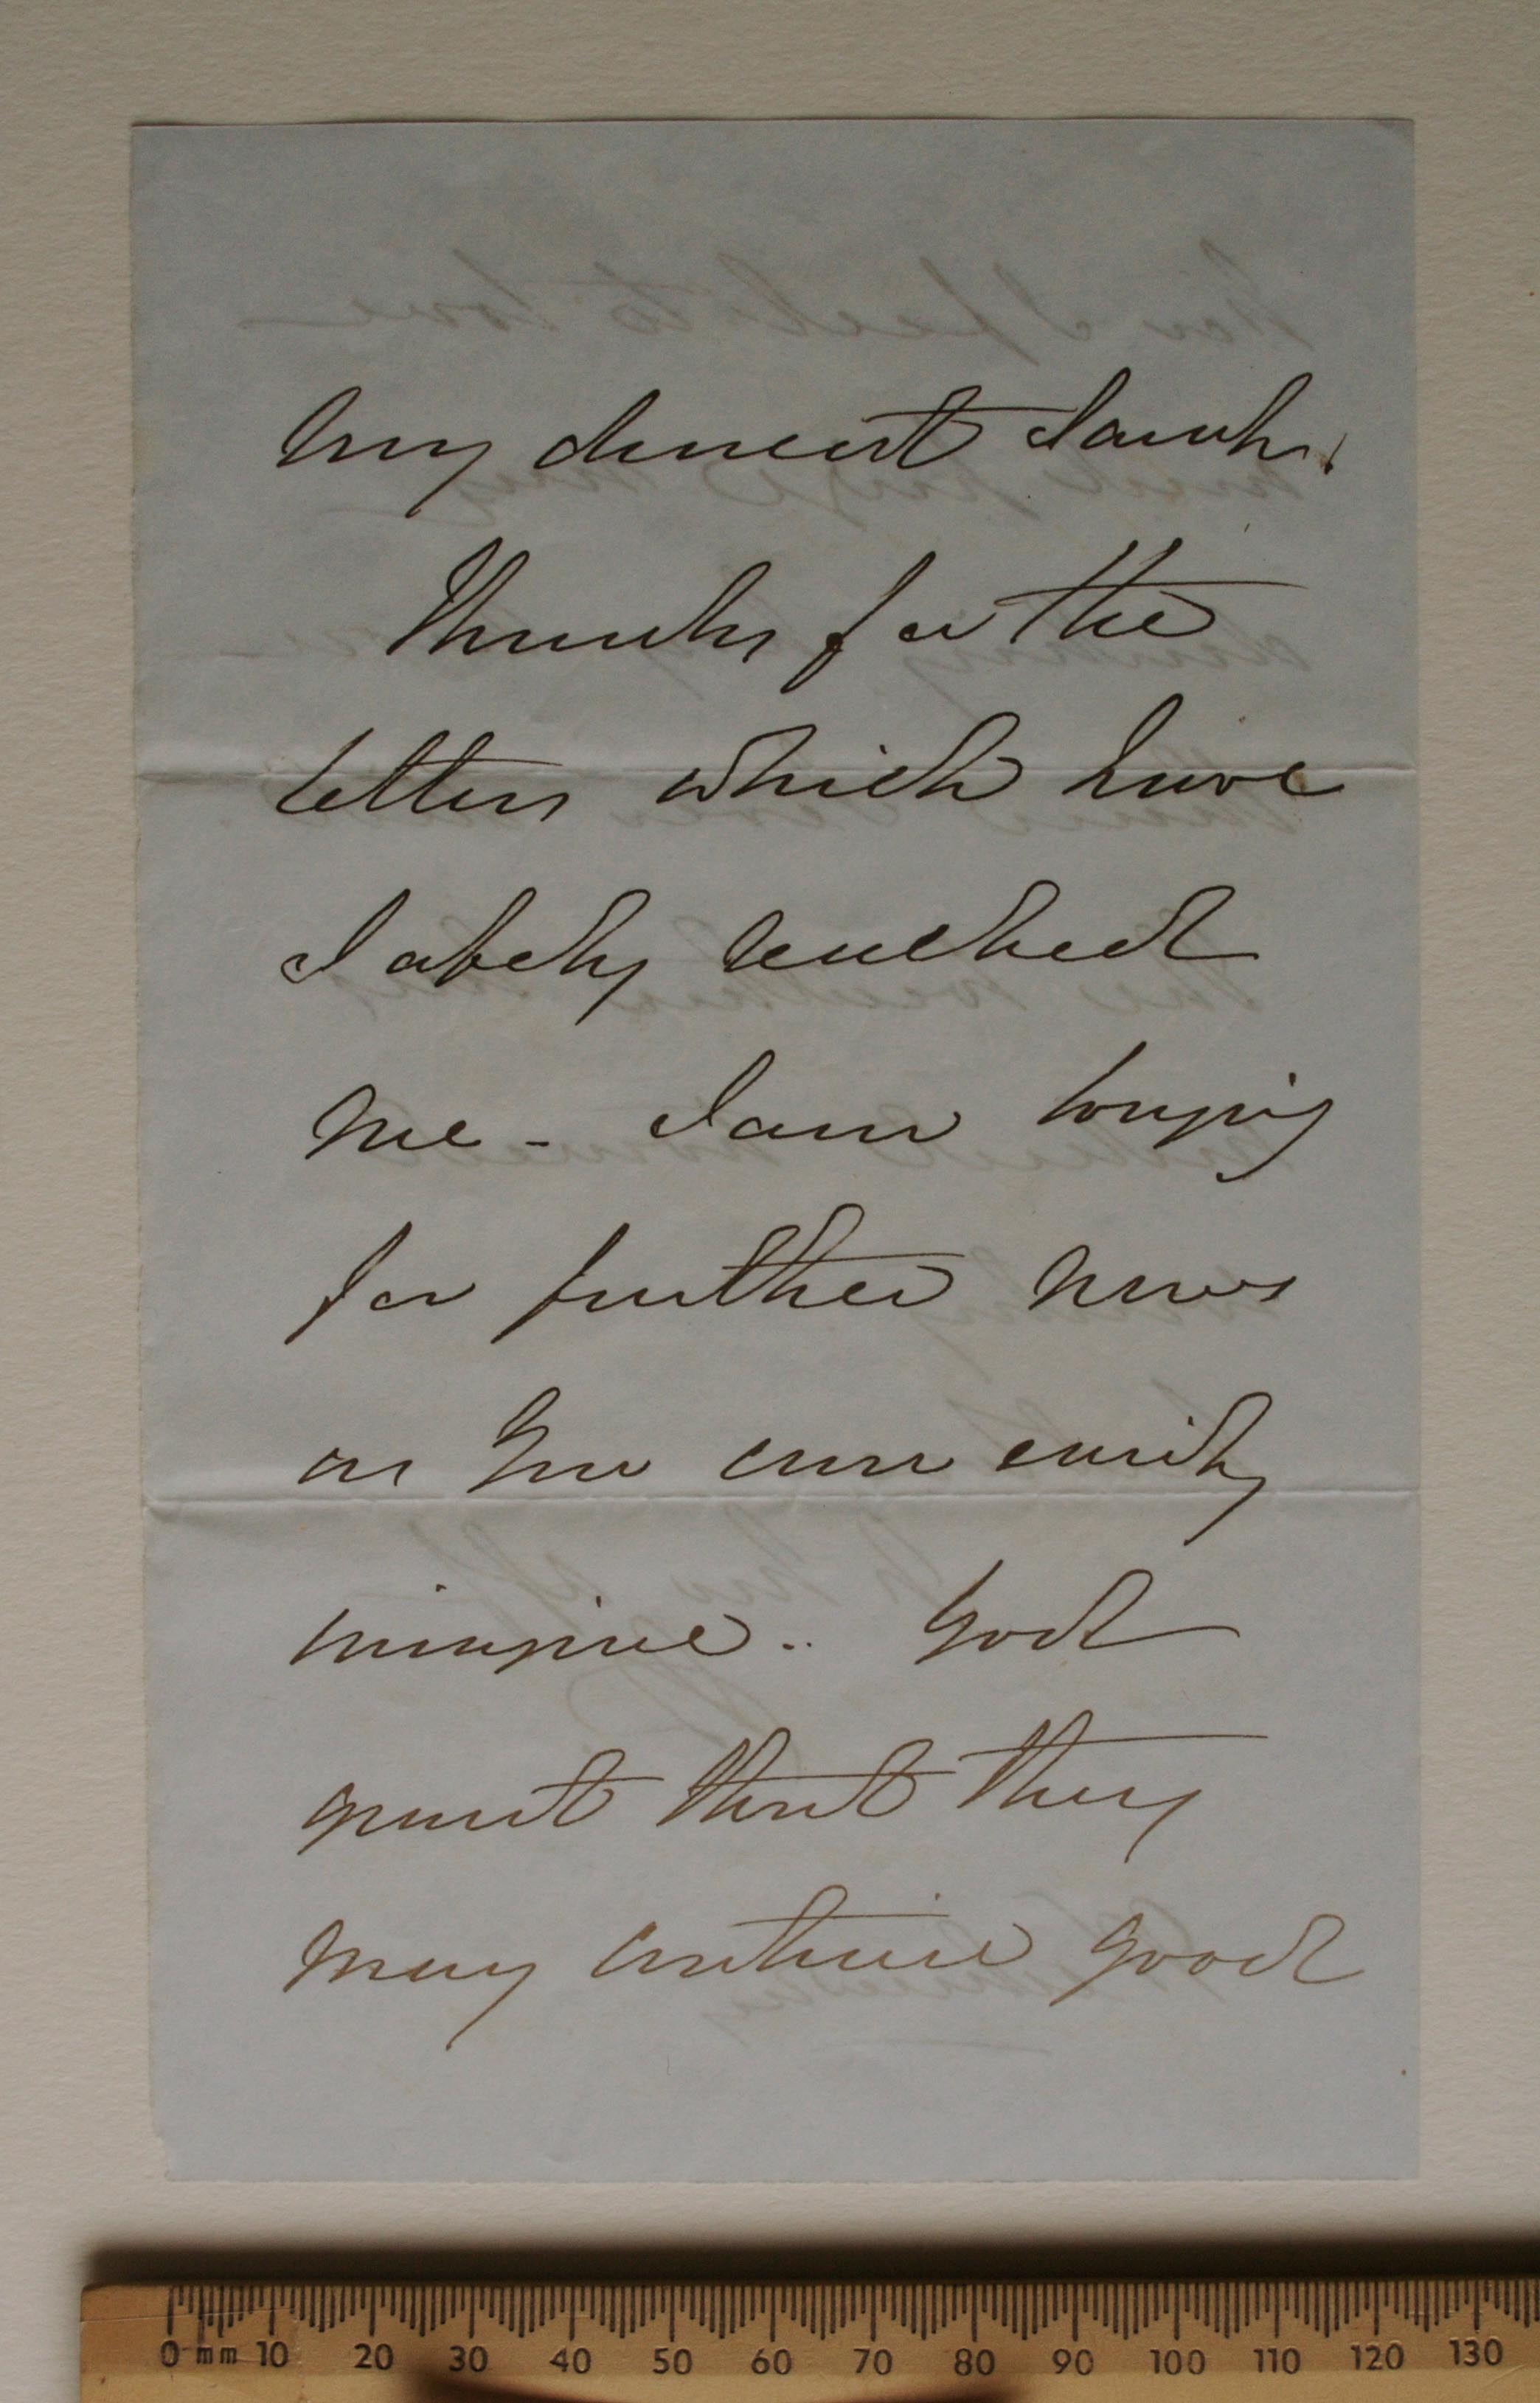 My dearest Sarah.
Thanks for the
letters which have
safely reached
me - I am longing
for further news
as you can easily
imagine.. God
grant that they
may continue good
0 mm 10 20 30 40 50 60 70 80 90 100 110 120 130